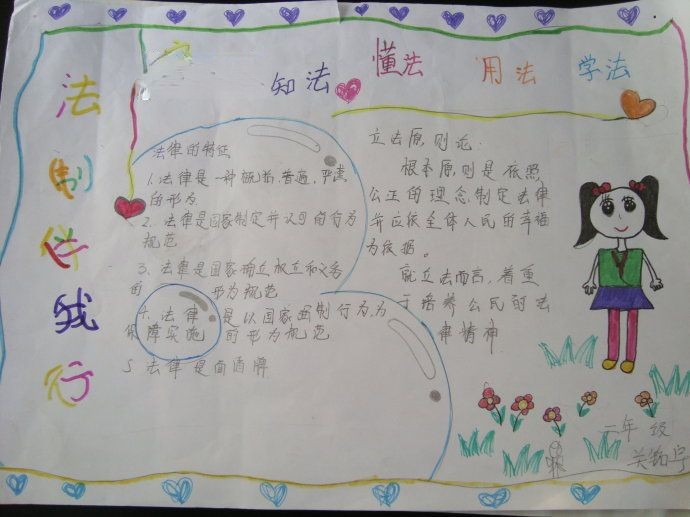 法制伴我行
知法 懂法 用法 学法
法律的特征
1.法律是一种概括、普遍、严肃
的形态
2、法律是国家制定并认可的行为
规范
3、法律是国家确立权立和义务
的 形为规范
4.法律是以国家强制行为为
保障实施的形为规范
5 法律是面盾牌
立法原则论:
根本原则是依照
公正的理念制定法律
并应该全体人民的幸福
为依据。
就立法而言,着重
于培养公民的法
律精神
年级